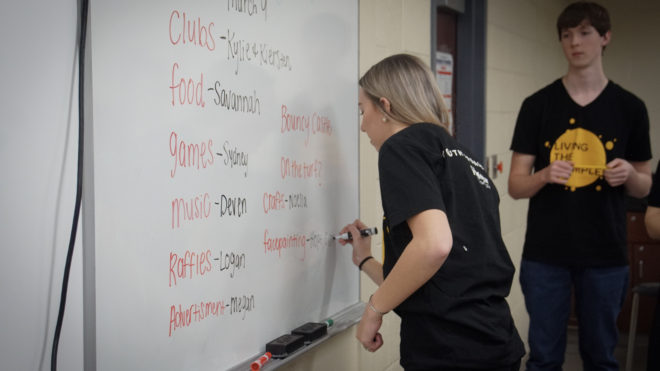 March 9
Clubs - Kylie & Kiersten
food - Savannah
Bouncy Castle
games - Sydney
On the turf?
music - Deven
crafts - Noelia
facepainting -
Raffles - Logan
Advertisment - megan
LIVING
THE